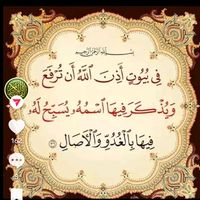 بسم الله الرحمن الرحيم
فِي بُيُوتٍ أَذِنَ اللَّهُ أَن تُرْفَعَ
وَيُذْكَرَ فِيهَا اسْمُهُ يُسَبِّحُ لَهُ
فِيهَا بِالْغُدُوِّ وَالْآصَالِ